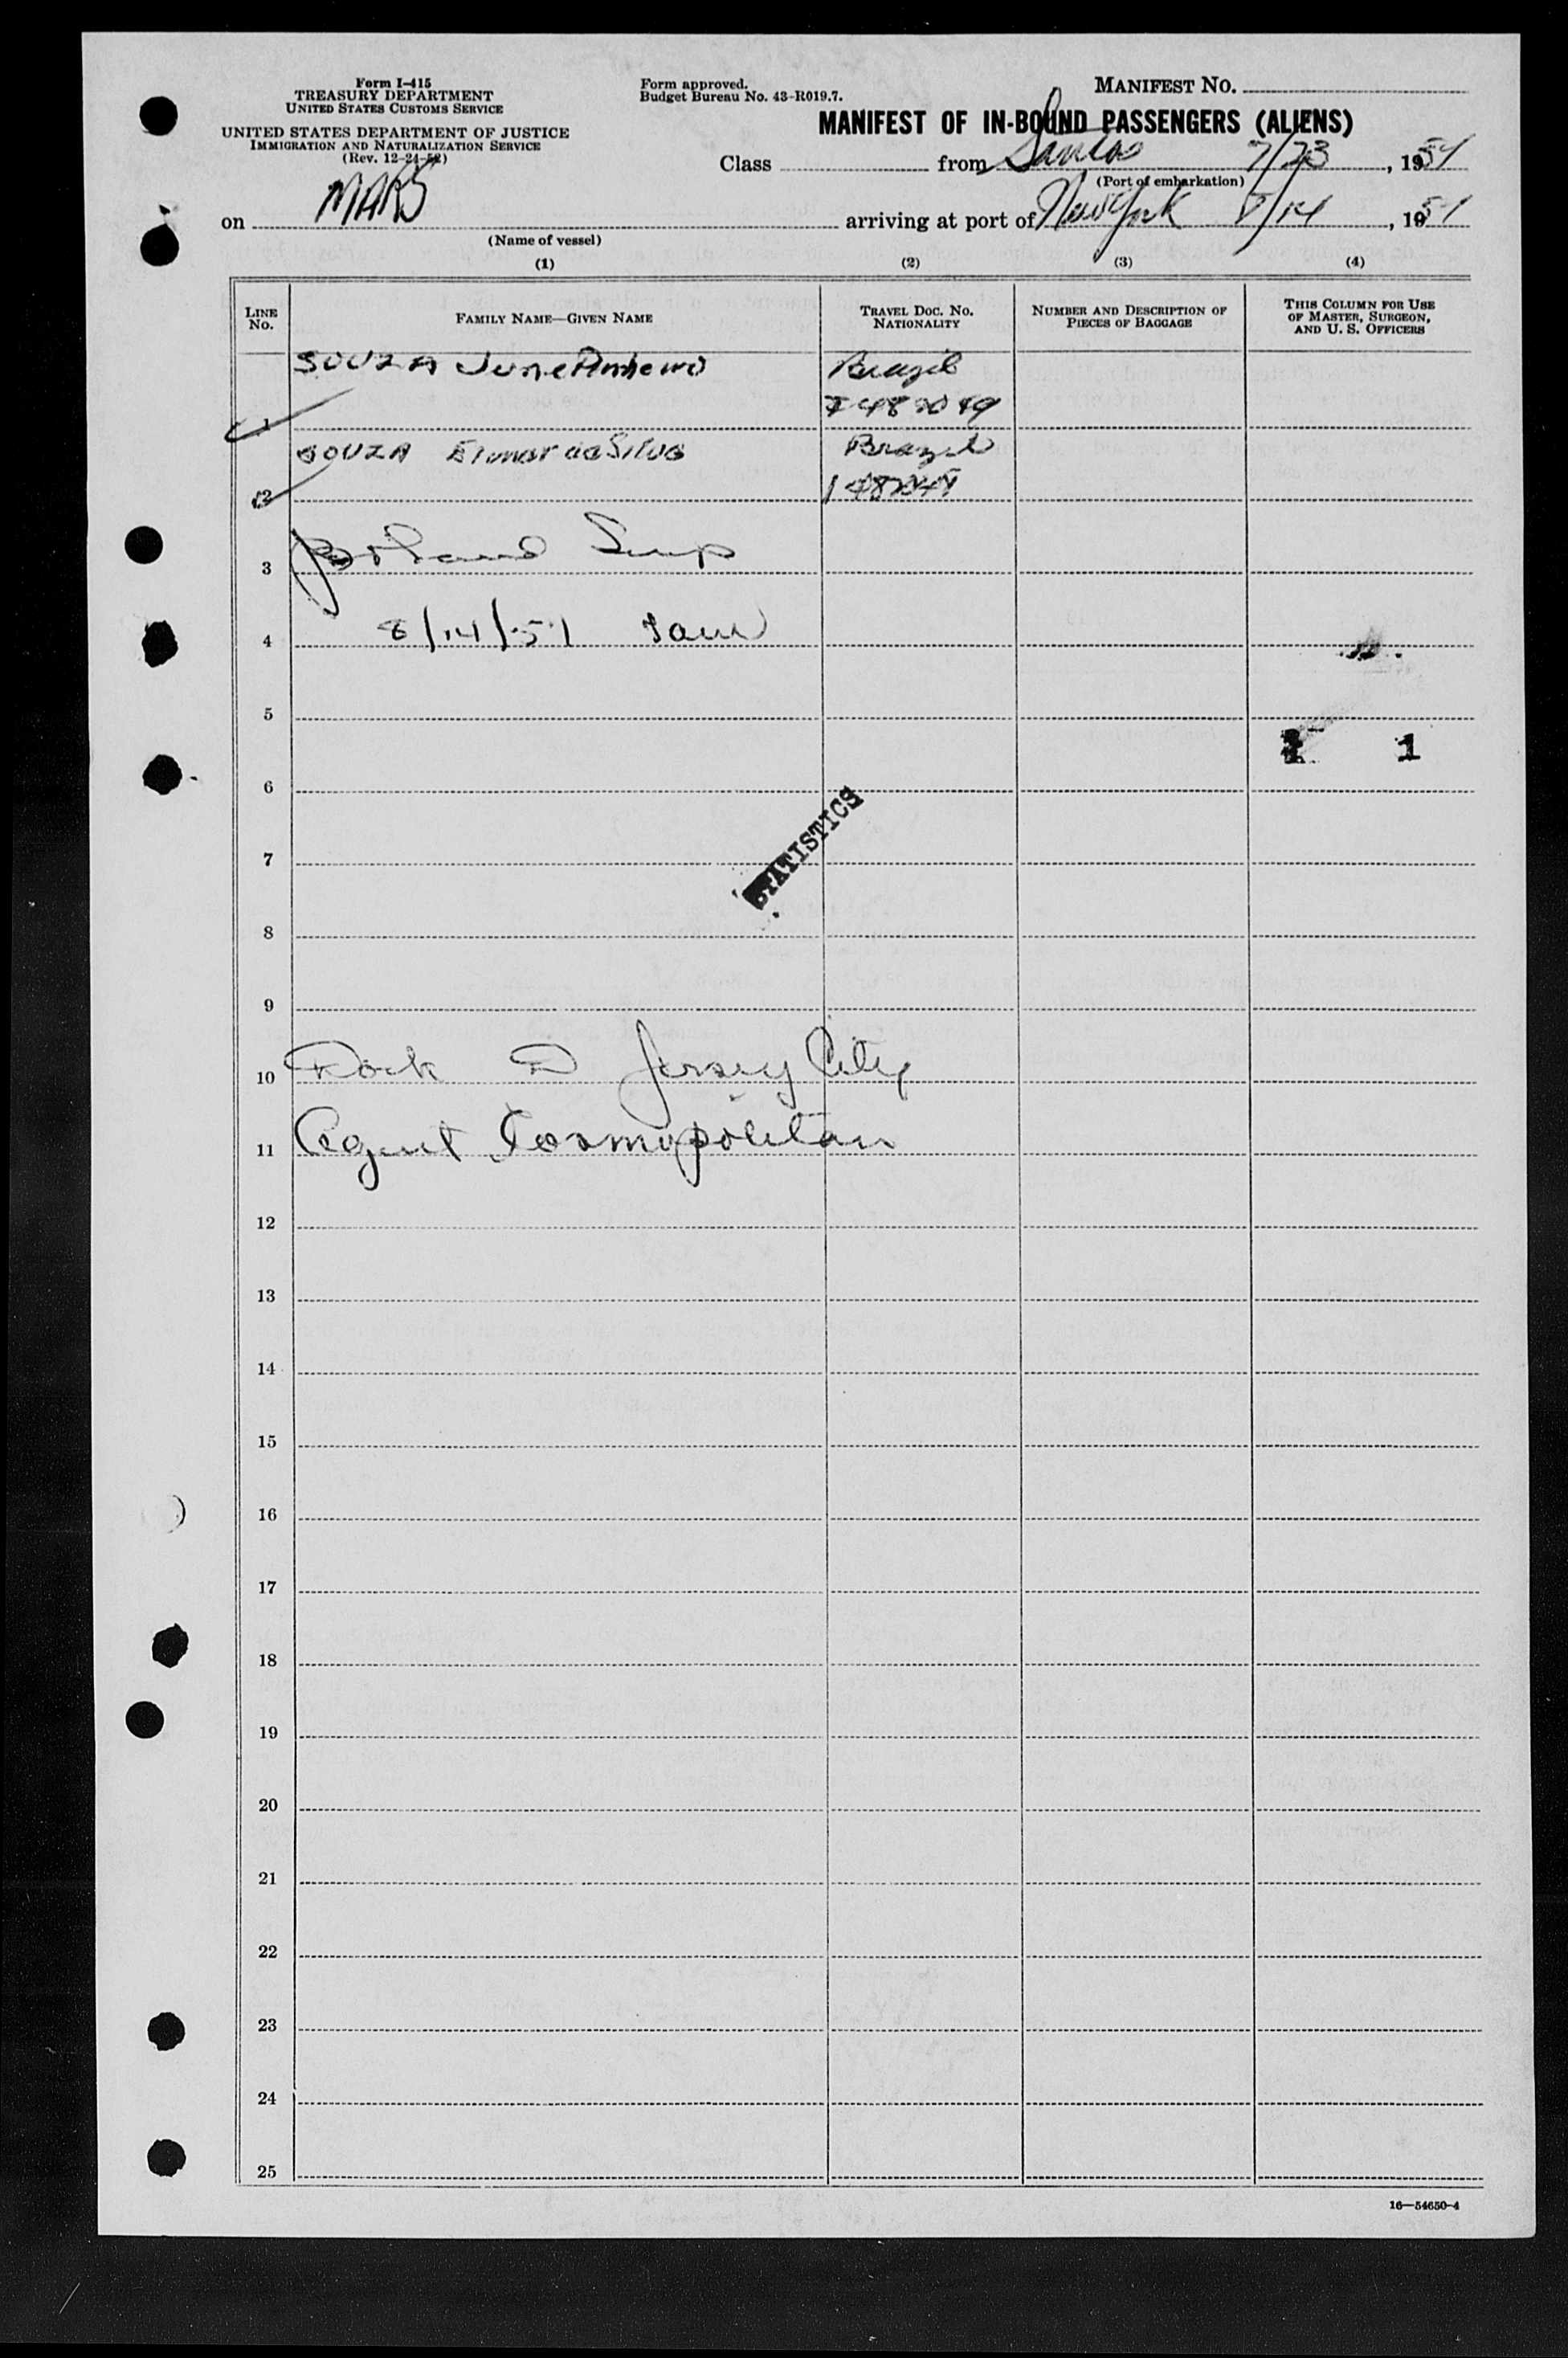 Form I-415
TREASURY DEPARTMENT
UNITED STATES CUSTOMS SERVICE
UNITED STATES DEPARTMENT OF JUSTICE
IMMIGRATION AND NATURALIZATION SERVICE
(Rev. 12-24-52)
Form approved.
Budget Bureau No. 43-R019.7.
MANIFEST NO.
MANIFEST OF IN-BOUND PASSENGERS (ALIENS)
Class from Santos 7/23, 1954
(Port of embarkation)
on MARS arriving at port of New York 8/14, 1954
(Name of vessel)
(1) (2) (3) (4)
LINE NO.
FAMILY NAME—GIVEN NAME
TRAVEL DOC. NO. NATIONALITY
NUMBER AND DESCRIPTION OF PIECES OF BAGGAGE
THIS COLUMN FOR USE OF MASTER, SURGEON, AND U. S. OFFICERS
SOUZA June Brazil
1
SOUZA da Silva Brazil
2
3
4 8/14/54
5
1
6
STATISTICS
7
8
9
10 Dock D Jersey City
11 Agent Cosmopolitan
12
13
14
15
16
17
18
19
20
21
22
23
24
25
16—54650-4